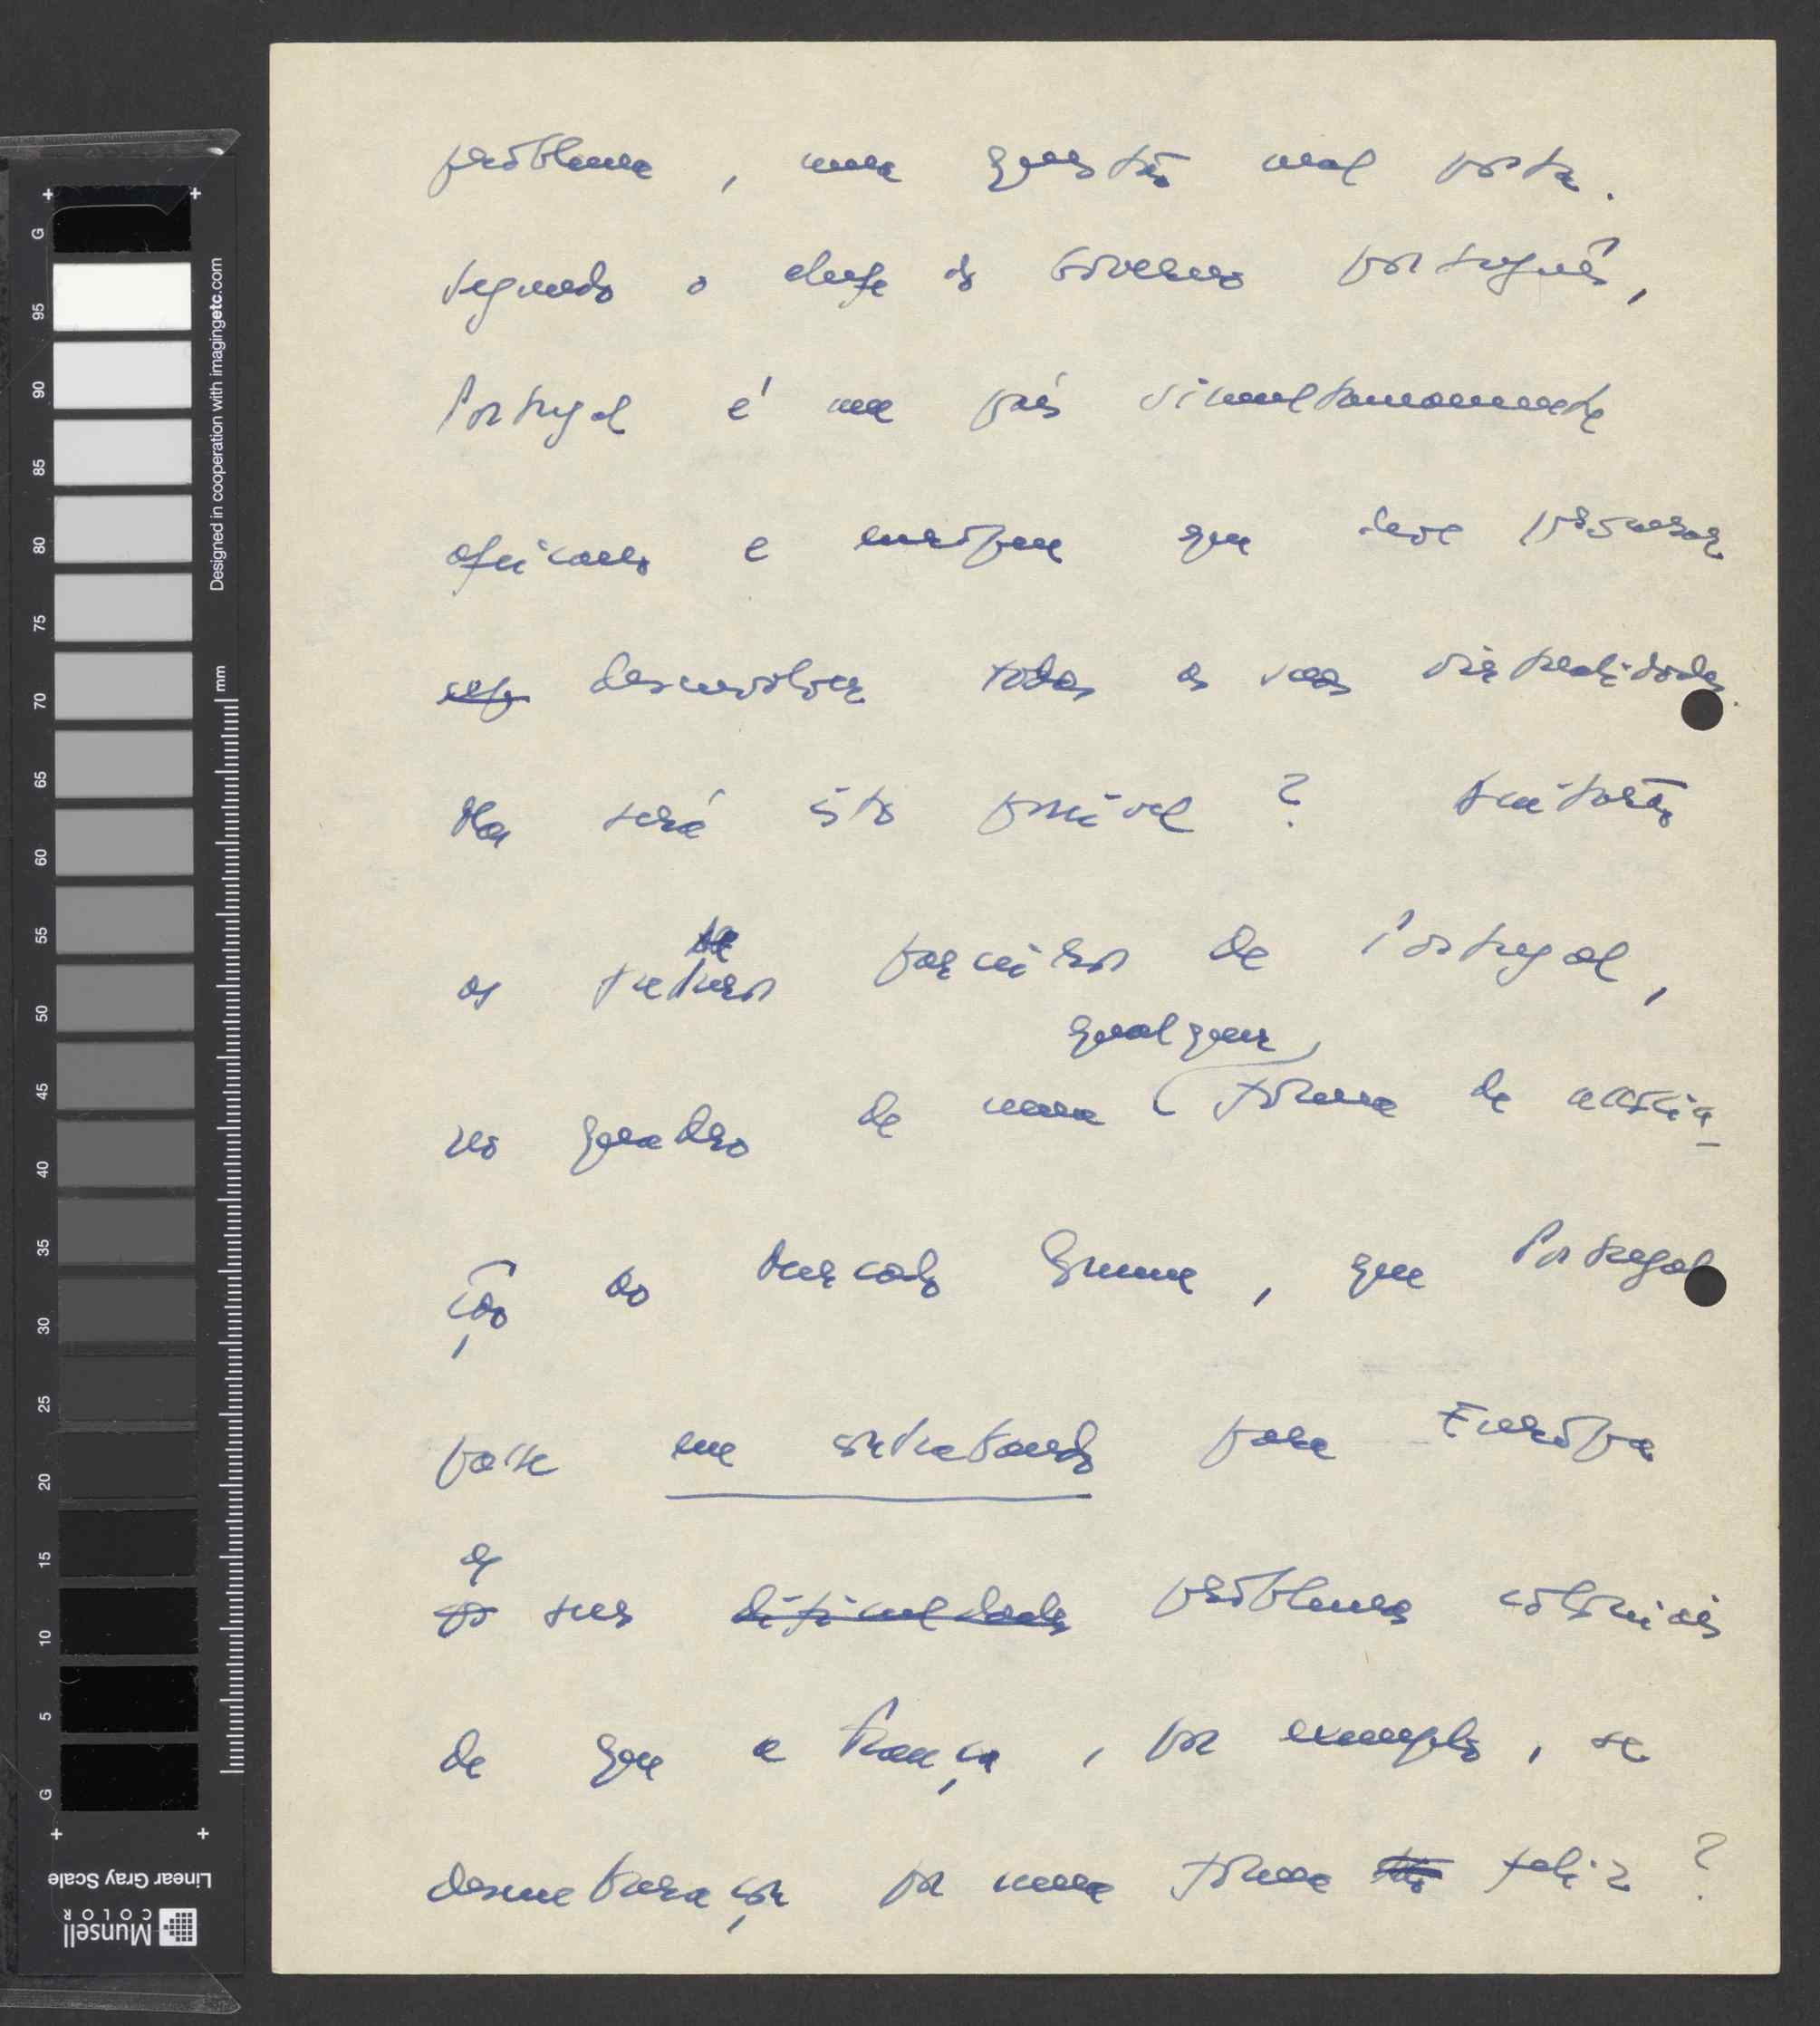 problema, uma questão mal posta.
Segundo o chefe do Governo português,
Portugal é um país simultaneamente
africano e europeu que deve procurar
desenvolver todas as suas virtualidades.
Mas será isto possível? Aceitarão
os futuros parceiros de Portugal,
qualquer
no quadro de uma forma de associa-
ção ao Mercado Comum, que Portugal
passe um contrabando para Europa
os
seus dificuldades problemas coloniais
de que a França, por exemplo, se
desembaraçou por uma forma feliz?
Designed in cooperation with imagingetc.com
mm
G 95 90 85 80 75 70 65 60 55 50 45 40 35 30 25 20 15 10 5 G
Linear Gray Scale
Munsell
COLOR